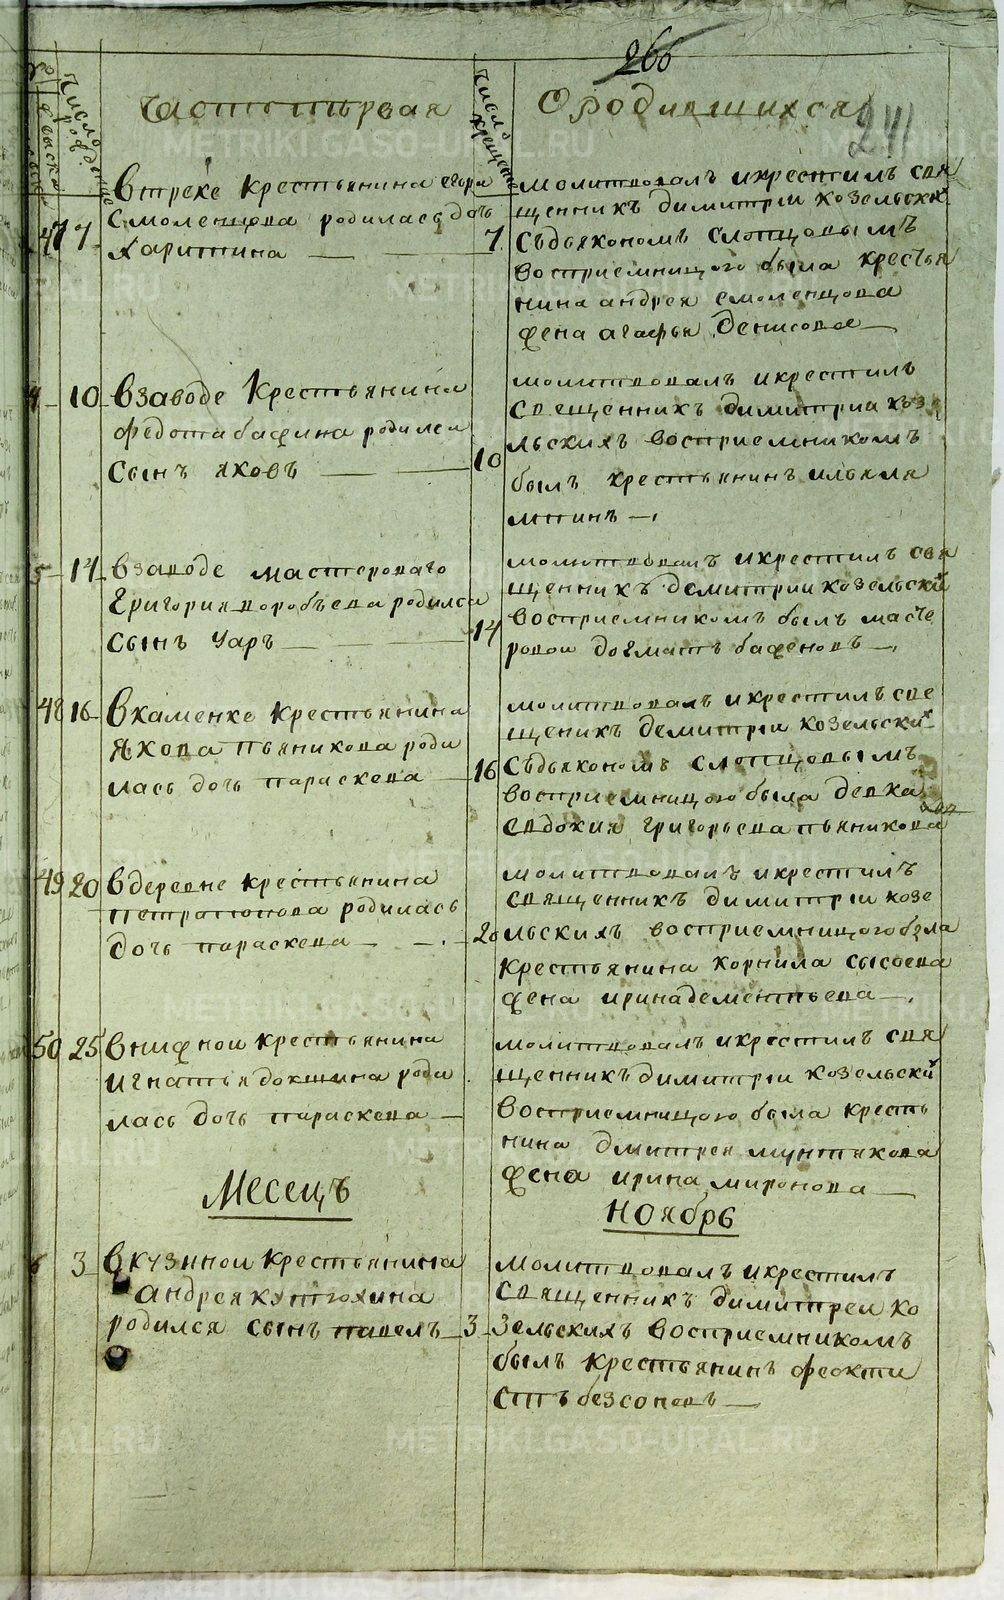 266
241
Часть первая
О родившихся
Число рожде
Число крещен
47 7
В треке крестьянина егора
Смоленцова родилась дочь
Харитина
7
молитвовалъ икрестилъ свя
щенникъ димитрiи козельскiй
Съдьякономъ Слопцовымъ
восприемницою была крестья
нина андрея смоленцова
жена агафья Денисова
10
Взаводе Крестьянина
Федота бажина родился
Сынъ яковъ
10
молитвовалъ икрестилъ
Священникъ димитрiи козе
льскихъ восприемникомъ
былъ крестьянинъ илья ля
минъ
5 14
Взаводе мастероваго
Григория воробьева родился
Сынъ Уаръ
14
молитвовалъ икрестилъ свя
щенникъ демитрiи козельскiй
восприемникомъ былъ масте
ровои долматъ баженовъ
48 16
Вкаменке крестьянина
Якова пьянкова роди
лась дочь параскева
16
молитвовалъ икрестилъ све
щеникъ демитрiи козельскiй
Съдьякономъ Слопцовымъ
восприемницою была девка
евдокия григорьева пьянкова
49 20
Вдеревне крестьянина
родилась
дочь параскева
20
молитвовалъ икрестилъ
Священникъ димитрiи козе
льскихъ восприемницою была
крестьянина корнила сысоева
жена ирина дементьева
50 25
Внижнои крестьянина
Игнатья докшина роди
лась дочь параскева
молитвовалъ икрестилъ свя
щенникъ димитрiи козельскiй
Восприемницою была кресть
нина дмитрея мунтякова
жена ирина миронова
Месецъ
Ноябрь
3
Вкузинои крестьянина
андрея
родился сынъ павелъ
3
молитвовалъ икрестилъ
Священникъ димитреи ко
зельскихъ восприемникомъ
былъ крестьянинъ феокти
стъ безсоновъ
METRIKI.GASO-URAL.RU